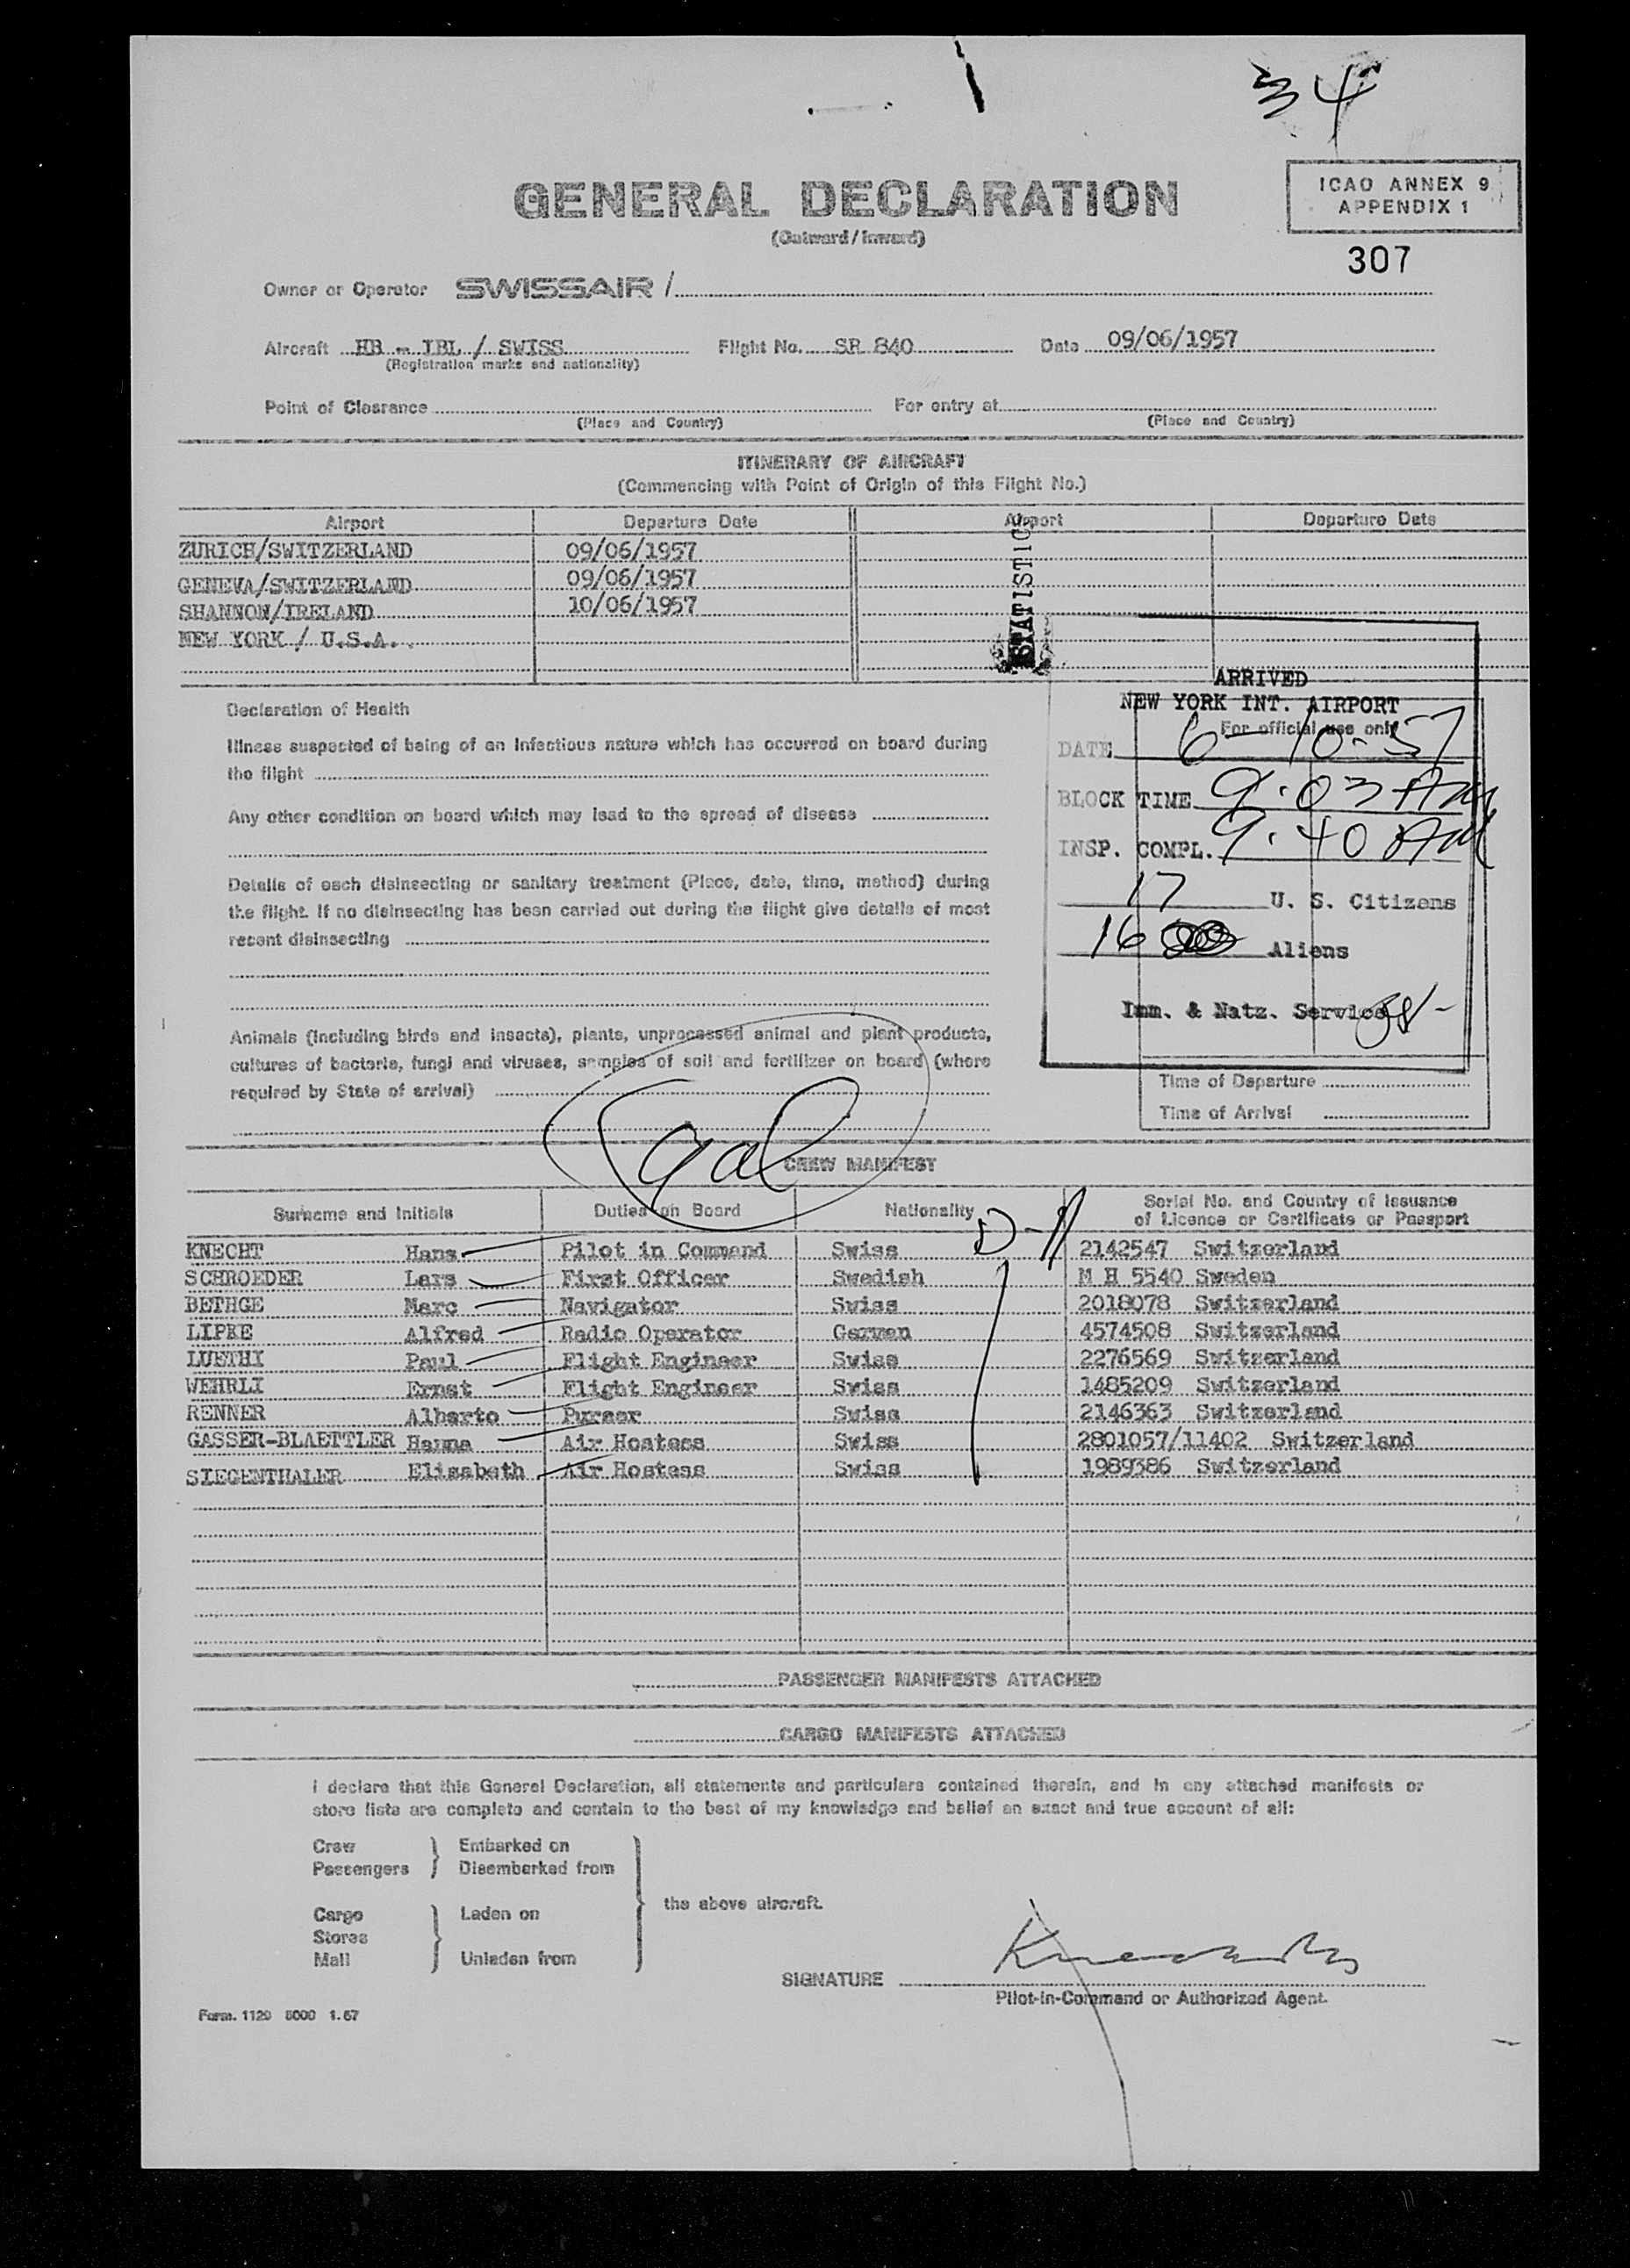 34
GENERAL DECLARATION
(Outward/Inward)
ICAO ANNEX 9
APPENDIX 1
307
Owner or Operator SWISSAIR /
Aircraft HB - IBL / SWISS Flight No. SR 840 Date 09/06/1957
(Registration marks and nationality)
Point of Clearance For entry at
(Place and Country) (Place and Country)
ITINERARY OF AIRCRAFT
(Commencing with Point of Origin of this Flight No.)
Airport Departure Date Airport Departure Date
ZURICH/SWITZERLAND 09/06/1957
GENEVA/SWITZERLAND 09/06/1957
SHANNON/IRELAND 10/06/1957
NEW YORK / U.S.A.
STATISTIC
Declaration of Health
Illness suspected of being of an infectious nature which has occurred on board during
the flight
Any other condition on board which may lead to the spread of disease
Details of each disinsecting or sanitary treatment (Place, date, time, method) during
the flight. If no disinsecting has been carried out during the flight give details of most
recent disinsecting
Animals (including birds and insects), plants, unprocessed animal and plant products,
cultures of bacteria, fungi and viruses, samples of soil and fertilizer on board (where
required by State of arrival)
ARRIVED
NEW YORK INT. AIRPORT
For official use only
DATE 6-10-57
BLOCK TIME 9:03 AM
INSP. COMPL. 9:40 AM
17 U. S. Citizens
16 Aliens
Imm. & Natz. Service
Time of Departure
Time of Arrival
CREW MANIFEST
Surname and Initials Duties on Board Nationality Serial No. and Country of Issuance
of Licence or Certificate or Passport
D-1
KNECHT Hans Pilot in Command Swiss 2142547 Switzerland
SCHROEDER Lars First Officer Swedish M H 5540 Sweden
BETHGE Marc Navigator Swiss 2018078 Switzerland
LIPKE Alfred Radio Operator German 4574508 Switzerland
LUETHI Paul Flight Engineer Swiss 2276569 Switzerland
WEHRLI Ernst Flight Engineer Swiss 1485209 Switzerland
RENNER Alberto Purser Swiss 2146363 Switzerland
GASSER-BLAETTLER Hanna Air Hostess Swiss 2801057/11402 Switzerland
SIEGENTHALER Elisabeth Air Hostess Swiss 1989386 Switzerland
PASSENGER MANIFESTS ATTACHED
CARGO MANIFESTS ATTACHED
I declare that this General Declaration, all statements and particulars contained therein, and in any attached manifests or
store lists are complete and contain to the best of my knowledge and belief an exact and true account of all:
Crew Embarked on
Passengers Disembarked from
the above aircraft.
Cargo Laden on
Stores
Mail Unladen from
SIGNATURE
Pilot-in-Command or Authorized Agent.
Form. 1120 5000 1.57